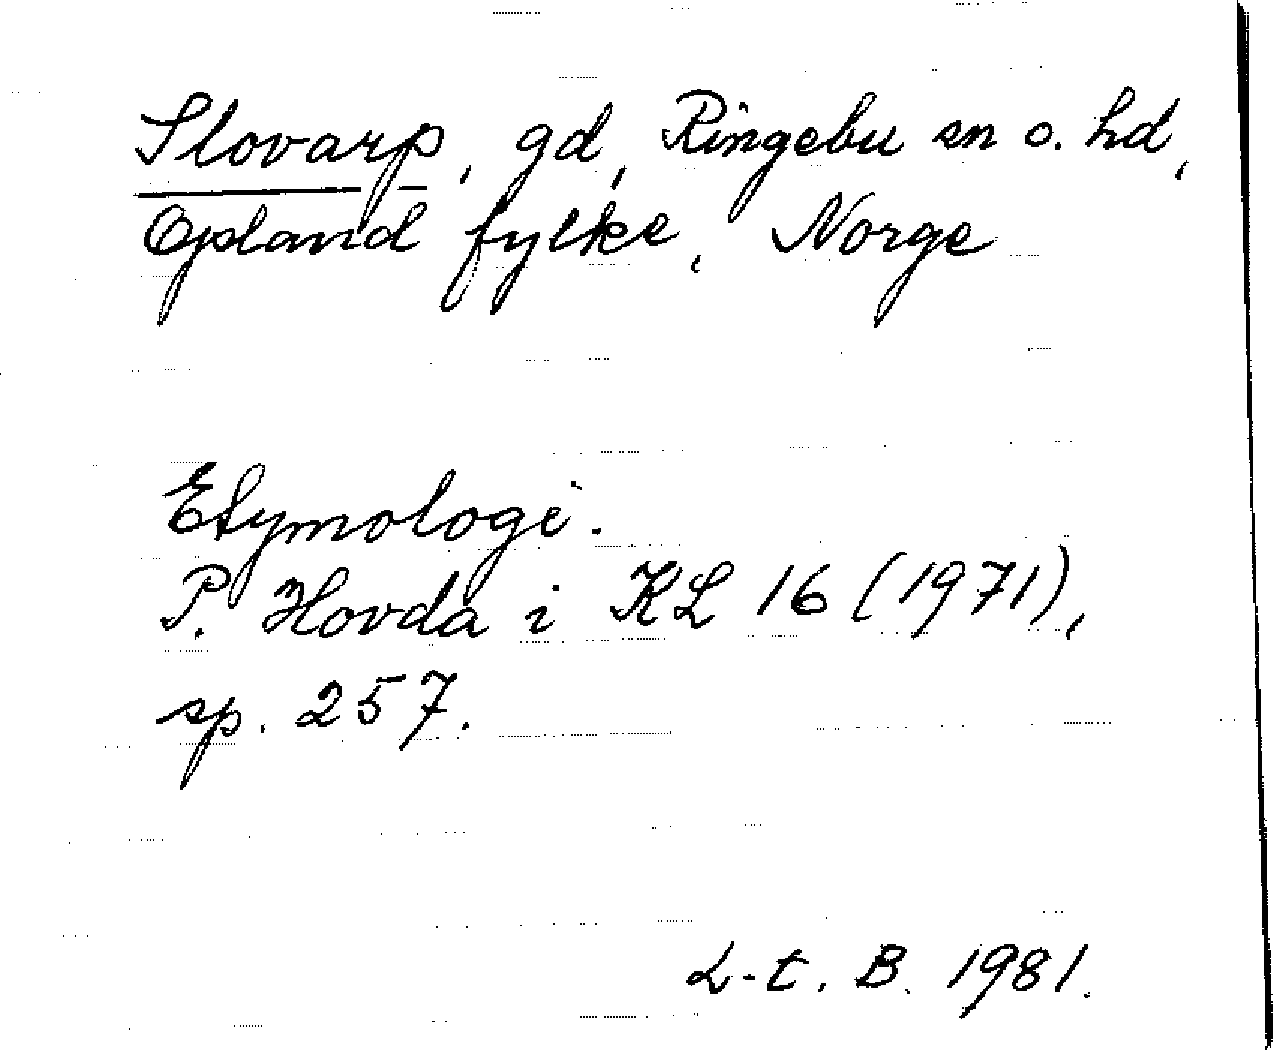 Slovarp, gd, Ringebu sn o. hd,
Opland fylke, Norge
Etymologi.
P. Hovda i KL 16 (1971),
sp. 257.
L-t. B. 1981.